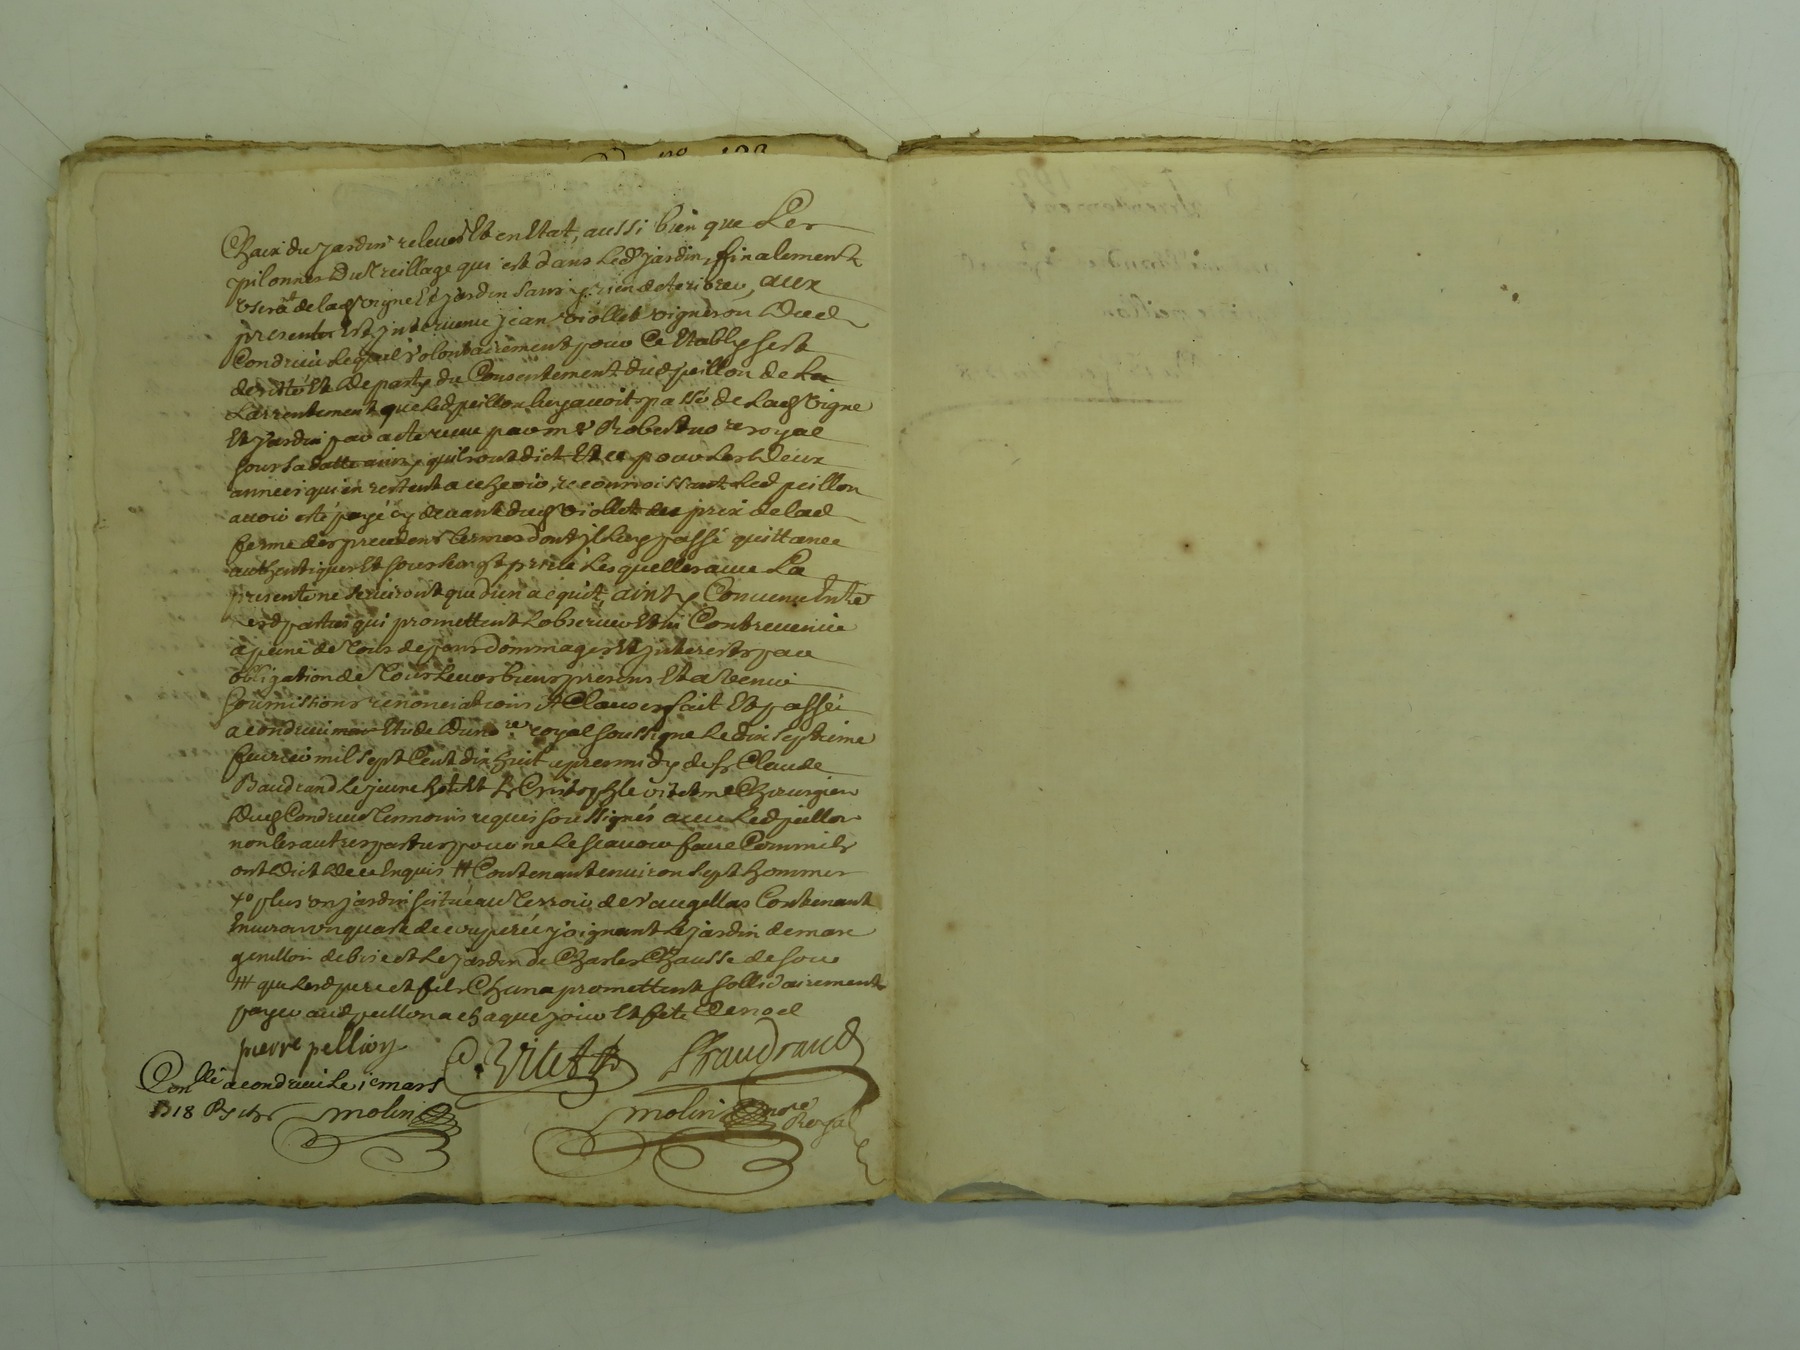 Chaix du jardin relevés Et en Etat, aussi bien que Les
pilonnes Du treillage qui est dans Led jardin, finalement
usera de lad vigne Et jardin sans y rien deteriorer, aux
presentes Est intervenu jean viollet vigneron Dud
Condrieu Lequel volontairement pour Ce Etably sest
desisté Et Departy du Consentement dud peillon de La
Larrentement que Led peillon luy avoit passé de Lad vigne
Et jardin par acte receu par me Robert no.re royal
sous sa datte ainsy quils ont dict Et ce pour Les Deux
années qui en restent a escheoir, reconnoissant Led peillon
avoir esté payé cy devant dud viollet du prix de lad
ferme des precedents termes dont il luy a passé quittance
authentiques Et sous seing privé Lesquelles avec La
presente ne serviront que d'un acquit, ainsy Convenu Entre
Lesd parties qui promettent Lobserver Et ny Contrevenir
a peine de Tous despens dommages Et interests par
obligation de Tous Leurs biens presens Et a Venir
soumissions renonciations Et Clauses fait Et passé
a condrieu Etude Du no.re royal soussigné Le dix septieme
fevrier mil sept Cent dix huit apres midy de sr Claude
Baudrand Le jeune Et sr Cristophle vitet me Chirurgien
Dud Condrieu Temoins requis soussignés avec Led peillon
non les autres parties pour ne Le scavoir faire Comme ils
ont Dict De ce Enquis # Contenant environ sept hommes
+o plus un jardin scitué au Terroir de Vaugellas Contenant
Environ un quart de couperée joignant Le jardin de marc
genillon de bise et Le jardin de Charles Chausse de soir
# que Lesd pere et fils Chana promettent sollidairement
payer aud peillon a chaque jour Et fete De noel
pierre pellion C. Vitet Baudrand
Con.llé a condrieu Le 1e mars
1718
molin molin no.re
Royal